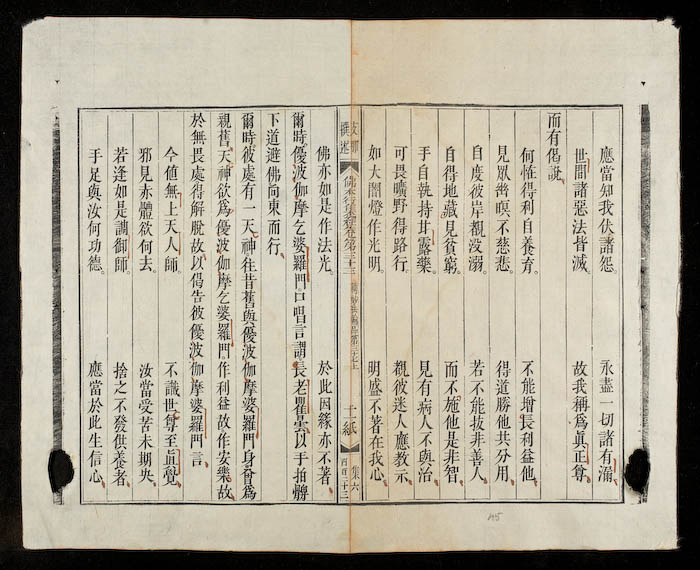 應當知我伏諸怨。　永盡一切諸有漏。
世間諸惡法皆滅。　故我稱爲眞正尊。
而有偈說
何恠得利自養育。　不能增長利益他。
見眾瞑不慈悲。　得道勝他共分用。
自度彼岸覩沒溺。　若不能拔非善人。
自得地藏見貧窮。　而不施他是非智。
手自執持甘露藥　見有病人不與治。
可畏曠野得路行。　觀彼迷人應教示。
如大闇燈作光明。　明盛不著在我心。
支那撰述
佛本行集經卷第三十三
十紙
集六
佛亦如是作法光　於此因緣亦不著。
爾時優波伽摩乞婆羅門口唱言謂長老瞿曇以手拍髀
下道避佛向東而行。
爾時彼處有一天神往昔舊與優波伽摩婆羅門身曾爲
親舊天神欲爲優波伽摩乞婆羅門作利益故作安樂故
於無畏處得解脫故以偈告彼優波伽摩婆羅門言
今値無上天人師　不識世尊至眞覺。
邪見赤體欲何去。　汝當受苦未期央。
若逢如是調御師。　捨之不發供養者。
手足與汝何功德。　應當於此生信心。